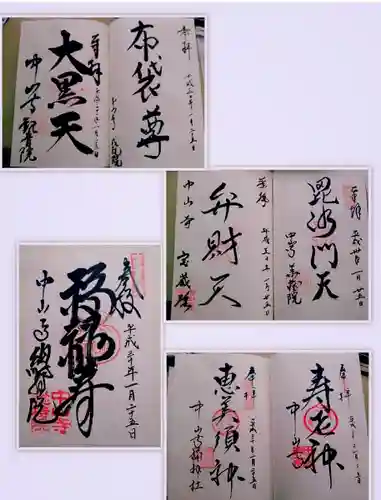 奉拝
布袋尊
平成三十年一月二十五日
中山寺 成就院
奉拝
大黒天
平成三十年一月二十五日
中山寺 観音院
奉拝
毘沙門天
平成卅年一月廿五日
中山寺 華蔵院
奉拝
弁財天
平成三十年一月廿五日
中山寺 宝蔵院
奉拝
福禄寿
平成三十年一月二十五日
中山寺
奉拝
寿老神
中山寺
奉拝
恵美須神
平成三十年一月二十五日
中山寺